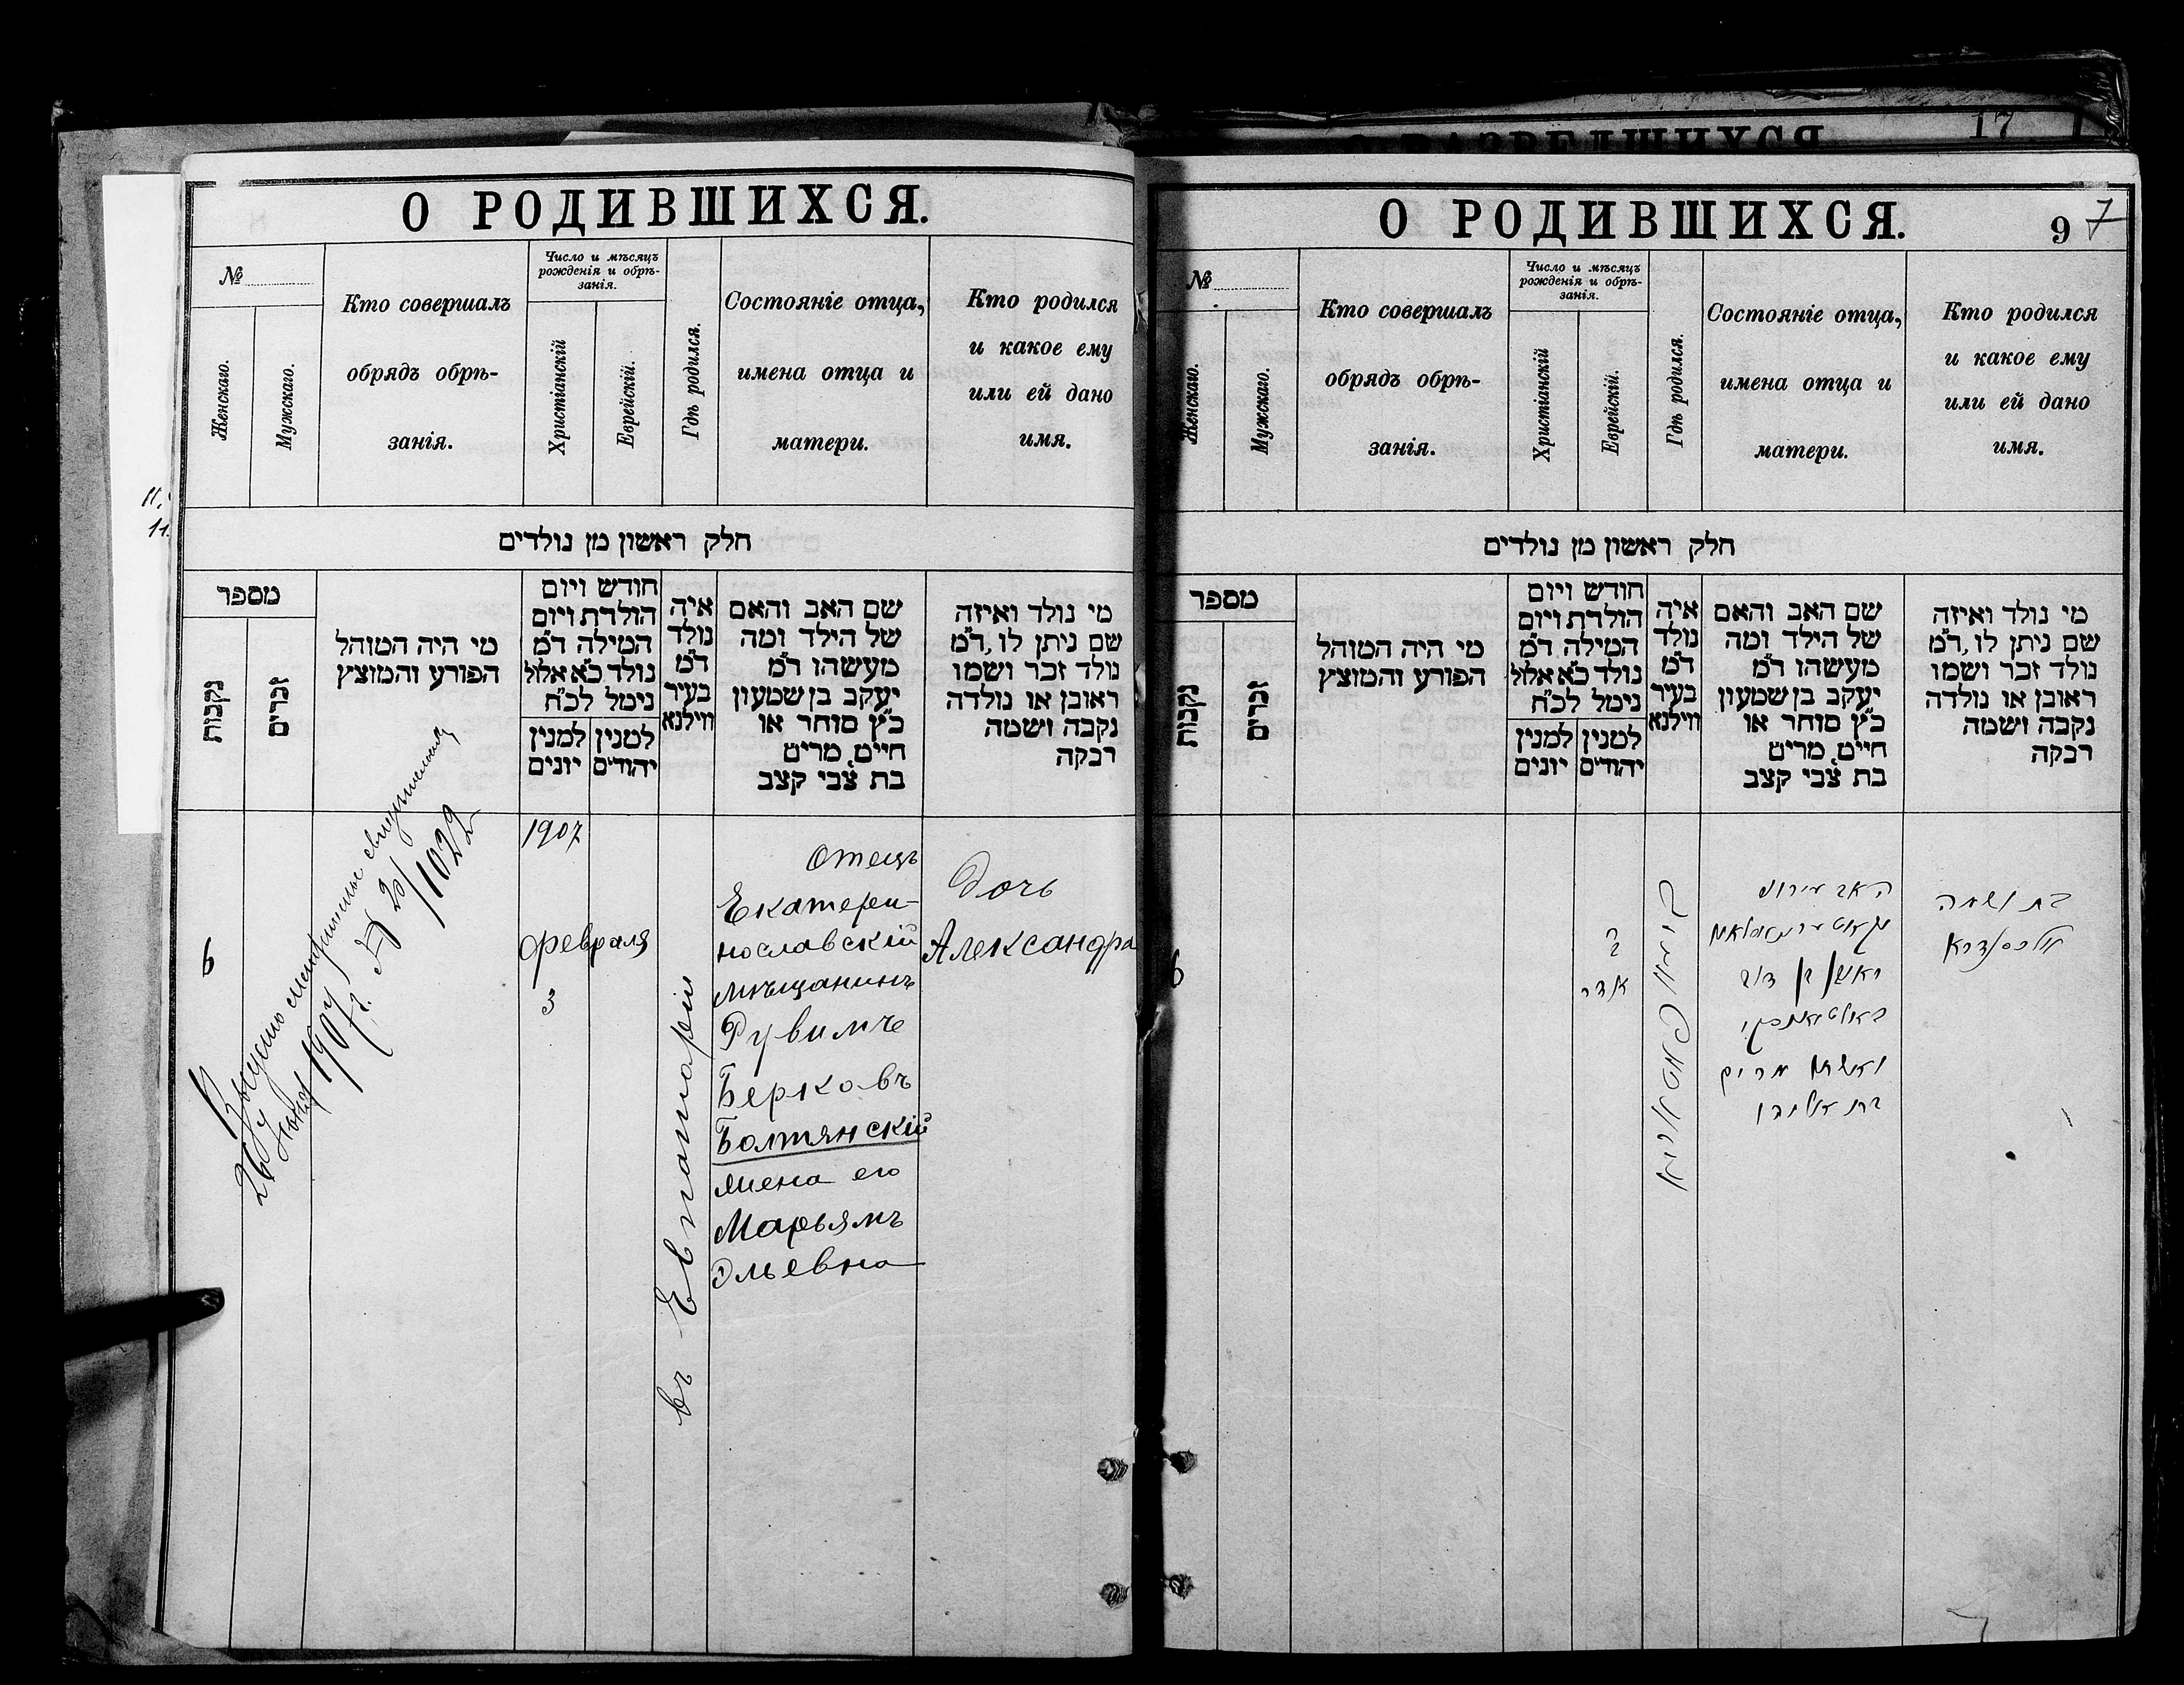 17
О РОДИВШИХСЯ.
№
Женскаго.
Мужскаго.
Кто совершалъ
обрядъ обрѣ-
занія.
Число и мѣсяцъ
рожденія и обрѣ-
занія.
Христіанскій
Еврейскій.
Гдѣ родился.
Состояніе отца,
имена отца и
матери.
Кто родился
и какое ему
или ей дано
имя.
חלק ראשון מן נולדים
מספר
נקבות
זכרים
מי היה המוהל
הפורע והמוצץ
חודש ויום
הולדת ויום
המילה ד״מ
נולד כ״א אלול
נימל לכ״ח
למנין
יונים
למנין
יהודים
איה
נולד
ד״מ
בעיר
ווילנא
שם האב והאם
של הילד ומה
מעשהו ד״מ
יעקב בן שמעון
כ״ץ סוחר או
חיים, מרים
בת צבי קצב
מי נולד ואיזה
שם ניתן לו, ד״מ
נולד זכר ושמו
ראובן או נולדה
נקבה ושמה
רבקה
6
26
1907 г. №
1022
1907
февраля
3
въ Евпаторіи
Отецъ
Екатери-
нославскій
мѣщанинъ
Рувимъ
Берковъ
Болтянскій
жена его
Марьямъ
Эльевна
Дочь
Александра
О РОДИВШИХСЯ.
9 7
№
Женскаго.
Мужскаго.
Кто совершалъ
обрядъ обрѣ-
занія.
Число и мѣсяцъ
рожденія и обрѣ-
занія.
Христіанскій
Еврейскій.
Гдѣ родился.
Состояніе отца,
имена отца и
матери.
Кто родился
и какое ему
или ей дано
имя.
חלק ראשון מן נולדים
מספר
נקבות
זכרים
מי היה המוהל
הפורע והמוצץ
חודש ויום
הולדת ויום
המילה ד״מ
נולד כ״א אלול
נימל לכ״ח
למנין
יונים
למנין
יהודים
איה
נולד
ד״מ
בעיר
ווילנא
שם האב והאם
של הילד ומה
מעשהו ד״מ
יעקב בן שמעון
כ״ץ סוחר או
חיים, מרים
בת צבי קצב
מי נולד ואיזה
שם ניתן לו, ד״מ
נולד זכר ושמו
ראובן או נולדה
נקבה ושמה
רבקה
6
אדר
האב
בן דוב
ואשתו מרים
בת אליהו
בת ושמה
אלכסנדרא